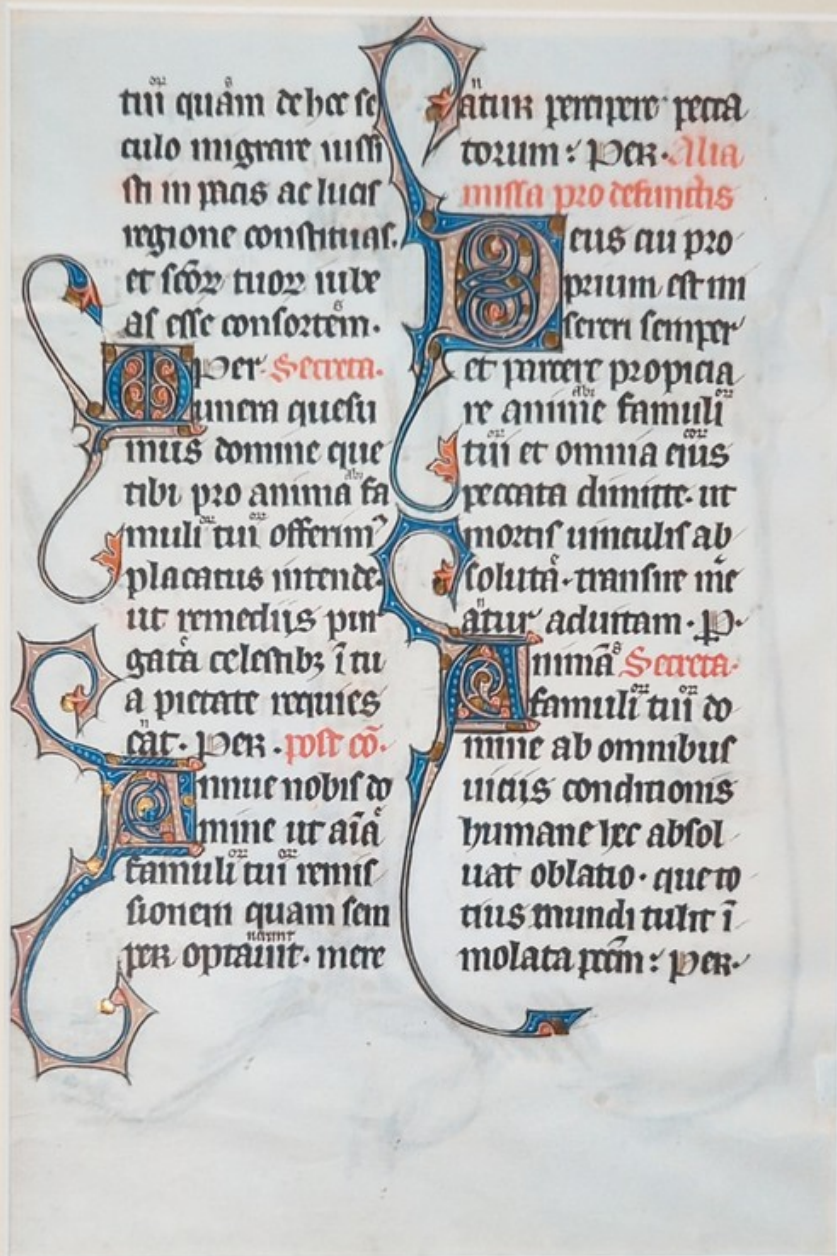 tui quam de hoc se
culo migrare iussi
sti in pacis ac lucis
regione constituas.
et scōꝝ tuoꝝ iube
as esse consortem.
Per. Secreta.
Munera quesu
mus domine que
tibi pro anima fa
muli tui offerimꝰ
placatus intende.
ut remediis pur
gata celestibꝫ ī tu
a pietate requies
cat. Per. post cō.
Annue nobis do
mine ut aīa
famuli tui remis
sionem quam sem
per optauit. mere
atur percipere pecca
torum : Per. Alia
missa pro defunctis
Deus cui pro
prium est mi
sereri semper
et parcere propicia
re anime famuli
tui et omnia eius
peccata dimitte. ut
mortis uinculis ab
soluta. transire me
atur ad uitam. P.
Anima Secreta.
famuli tui do
mine ab omnibus
uiciis conditionis
humane hec absol
uat oblatio. que to
tius mundi tulit ī
molata pccm : Per.